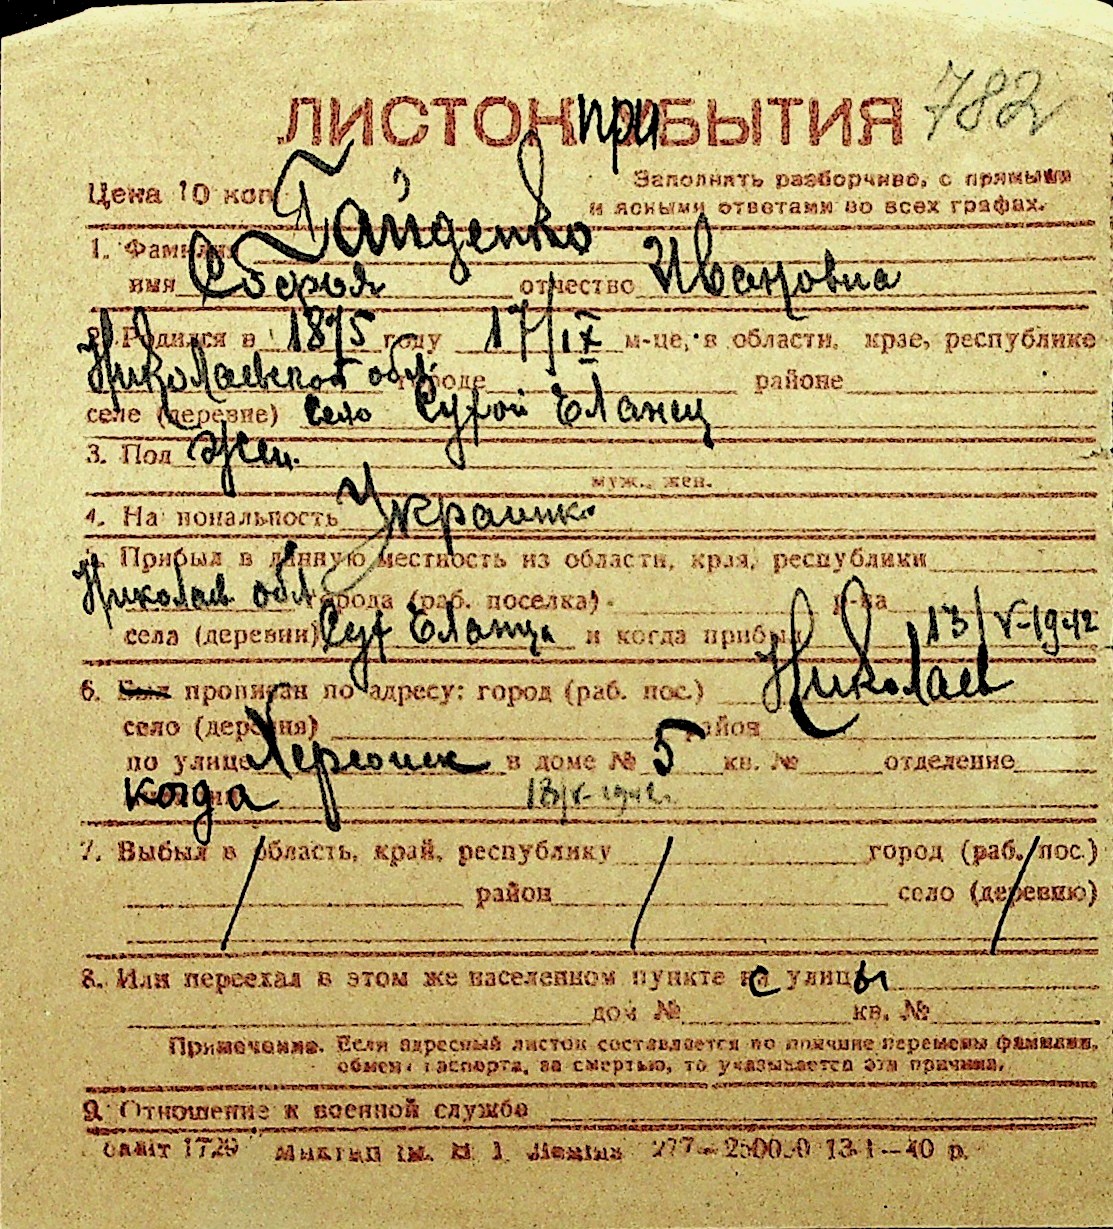 782
ЛИСТОК прибЫТИЯ
Цена 10 коп.
Заполнять разборчиво, с прямыми
и ясными ответами во всех графах.
1. Фамилия Гайденко
имя отчество Ивановна
2. Родился в 1875 году 17/IX м-це, в области, крае, республике
Николаевской обл. городе районе
селе (деревне) село Сухой Еланец
3. Пол жен.
муж., жен.
4. Национальность Украинк.
5. Прибыл в данную местность из области, края, республики
Николаев. обл. города (раб. поселка) р-на
села (деревни) Сух Еланца и когда прибыл 13/V-1942
6. Был прописан по адресу: город (раб. пос.) Николаев
село (деревня) район
по улице Херсонск в доме № 5 кв. № отделение
когда 13/V-1942.
7. Выбыл в область, край, республику город (раб. пос.)
район село (деревню)
8. Или переехал в этом же населенном пункте с улицы
дом № кв. №
Примечание. Если адресный листок составляется по причине перемены фамилии,
обмена паспорта, за смертью, то указывается эта причина.
9. Отношение к военной службе
1729 277— 13 1—40 р.